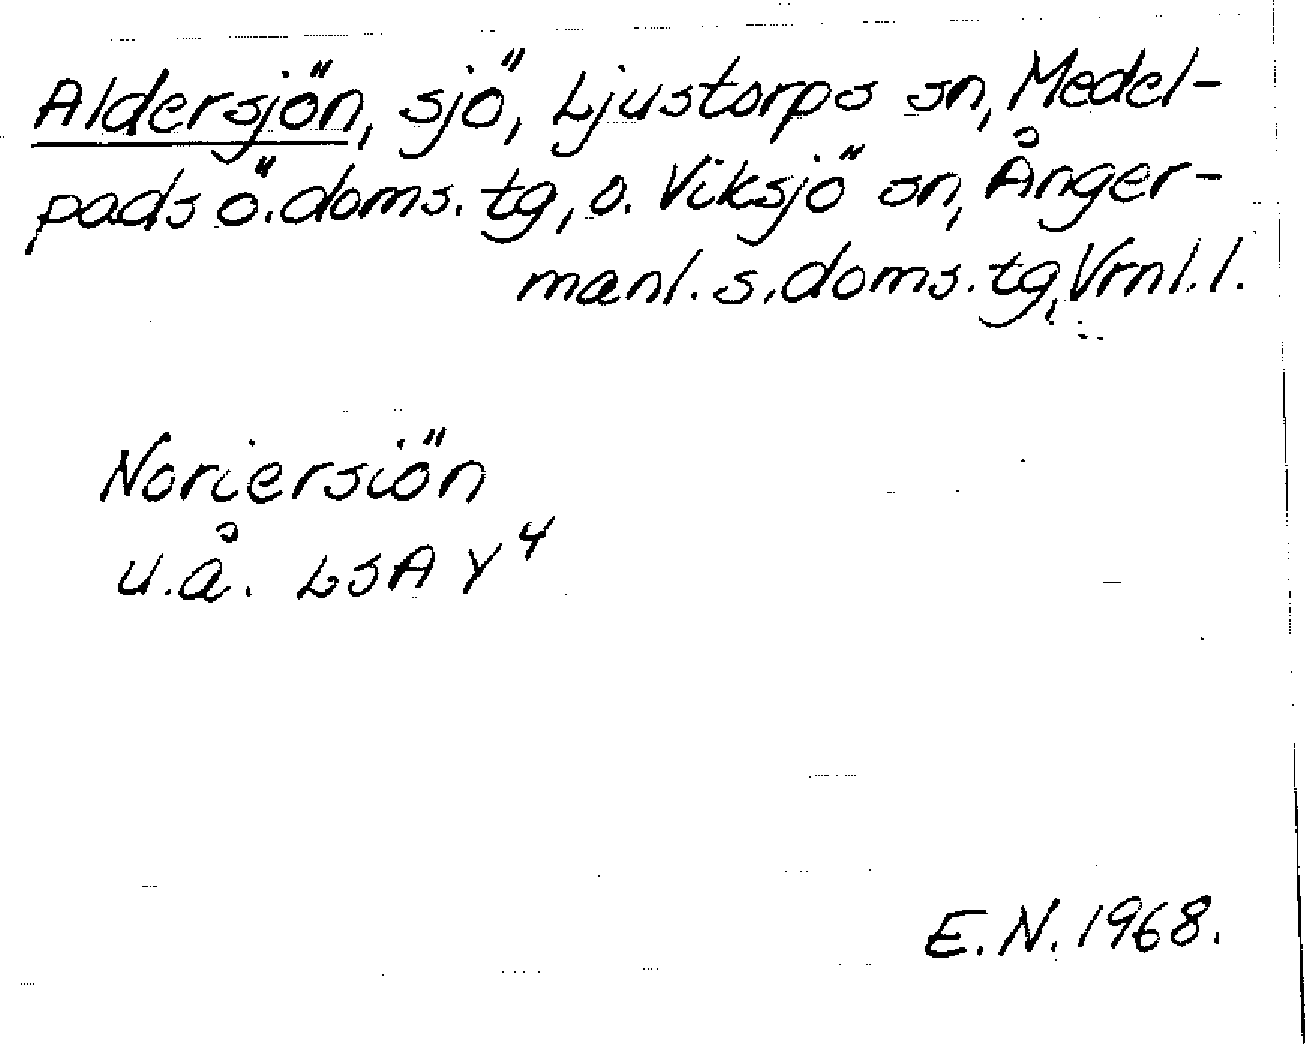 Aldersjön, sjö, Ljustorps sn, Medel-
pads ö. doms. tg, o. Viksjö sn, Ånger-
manl. s. doms. tg, Vrnl. l.
Noriersiön
u.å. LSA Y4
E. N. 1968.